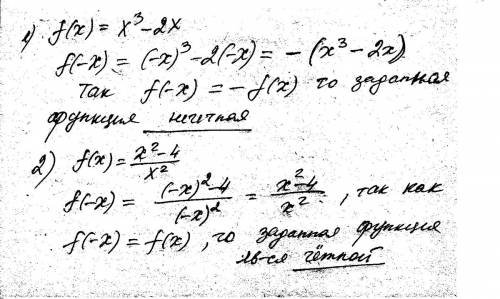 1) f(x) = x³ - 2x
f(-x) = (-x)³ - 2(-x) = - (x³ - 2x)
Так f(-x) = -f(x) то заданная
функция нечетная
2) f(x) = (x² - 4)/x²
f(-x) = ((-x)² - 4)/(-x)² = (x² - 4)/x² , так как
f(-x) = f(x) , то заданная функция
яв-ся чётной